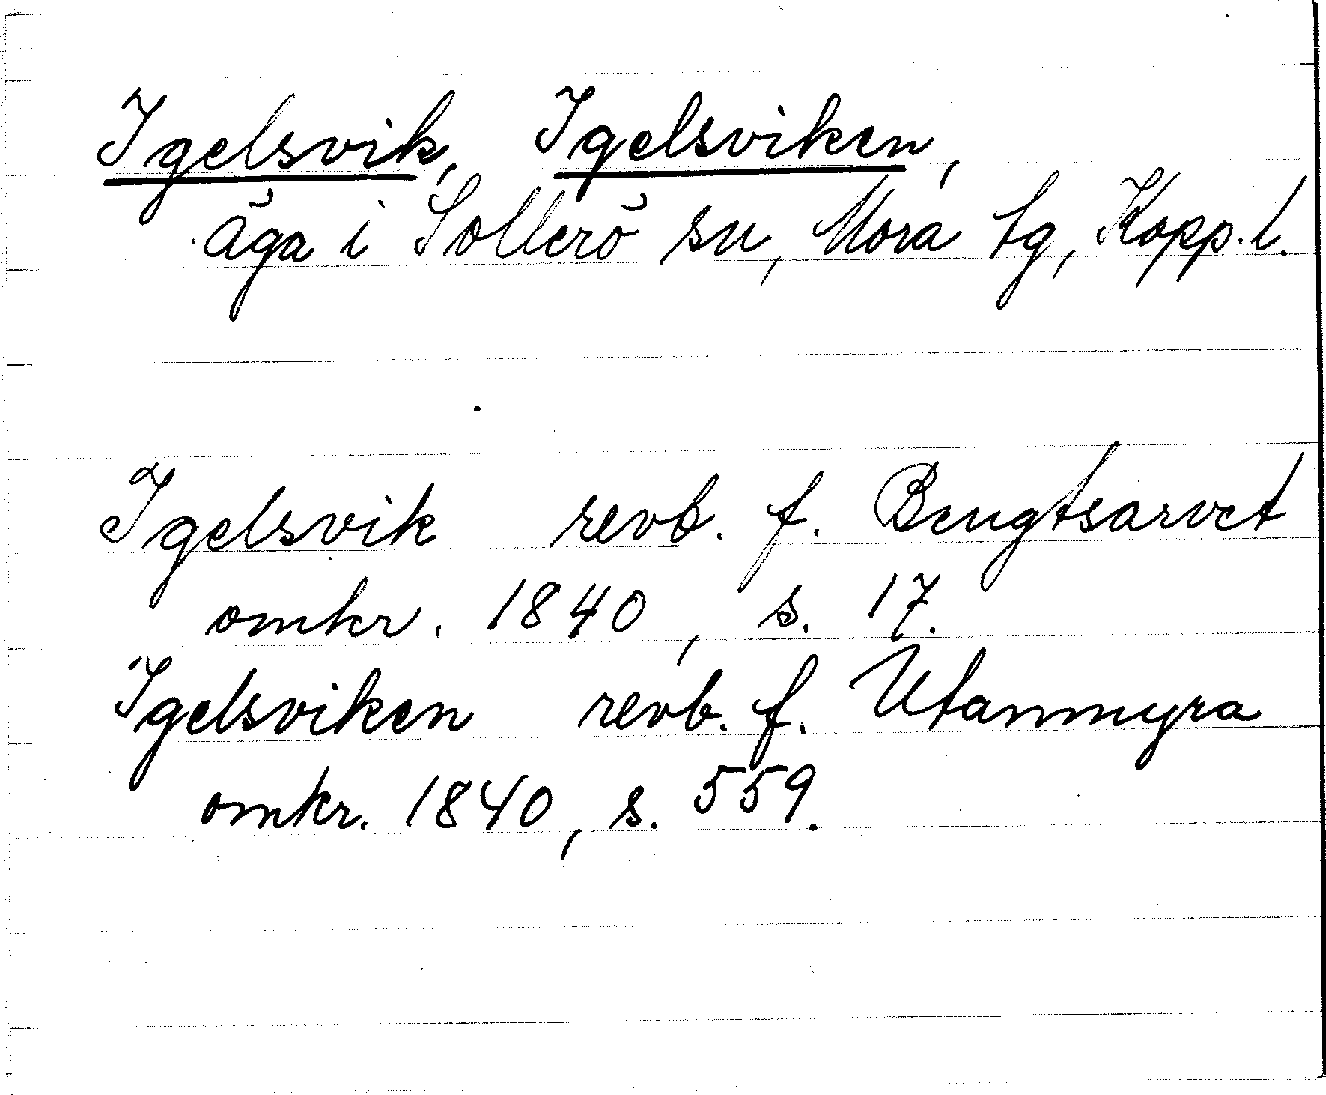 Igelsvik, Igelsviken,
äga i Sollerö sn, Mora tg, Kopp. l.
Igelsvik revb. f. Bengtsarvet
omkr. 1840, s. 17.
Igelsviken revb. f. Utanmyra
omkr. 1840, s. 559.